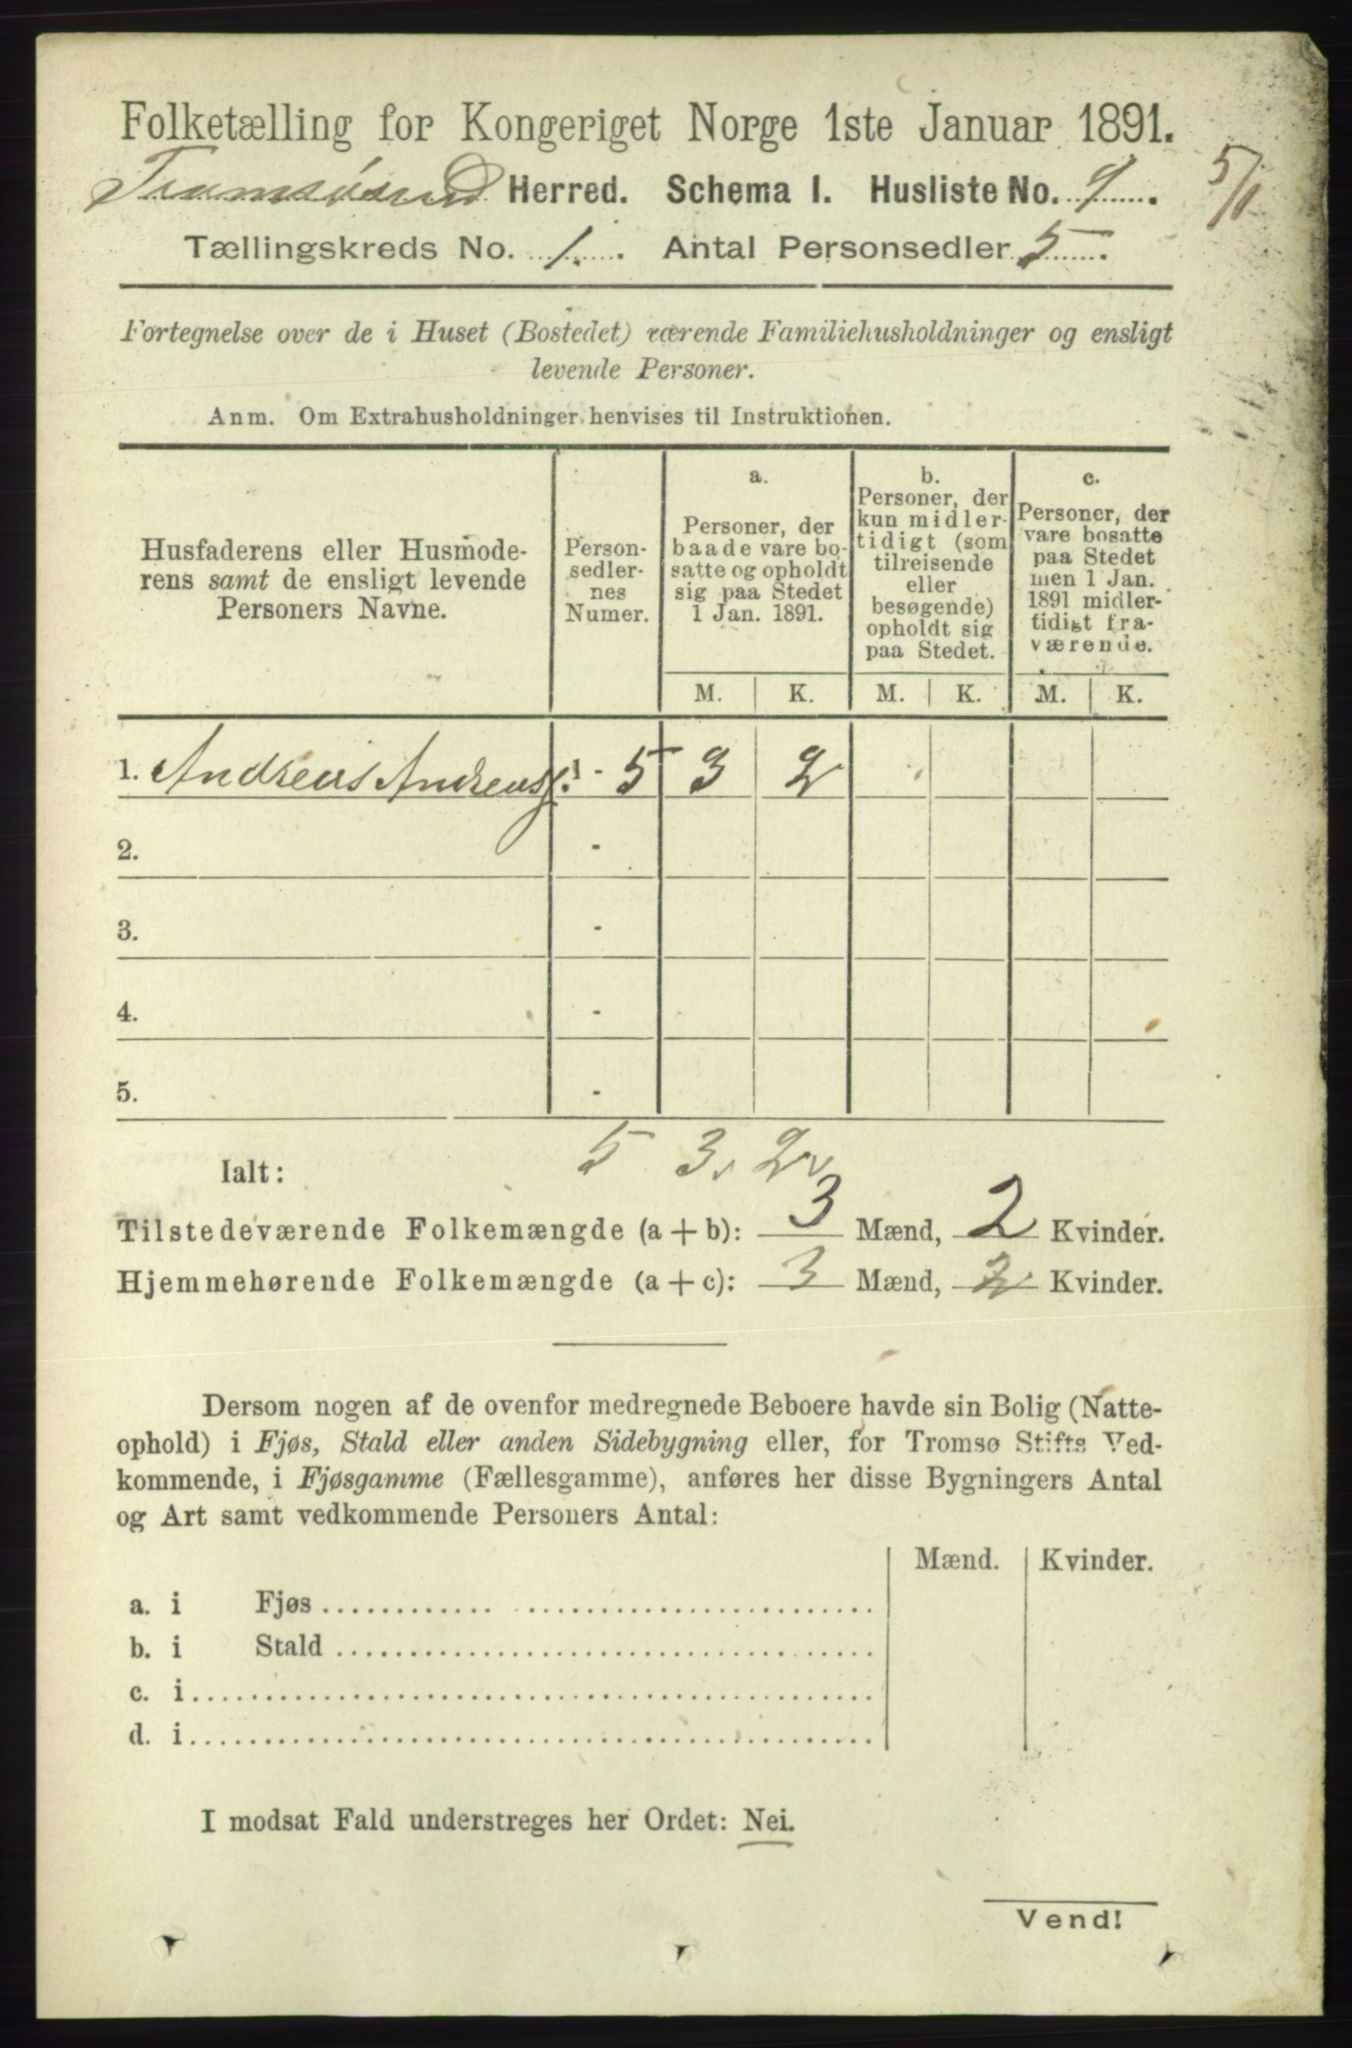 Folketælling for Kongeriget Norge 1ste Januar 1891.
Tromsøsund Herred. Schema I. Husliste No. 9. 5/1
Tællingskreds No. 1. Antal Personsedler 5.
Fortegnelse over de i Huset (Bostedet) værende Familiehusholdninger og ensligt
levende Personer.
Anm. Om Extrahusholdninger henvises til Instruktionen.
Husfaderens eller Husmode-
rens samt de ensligt levende
Personers Navne.
Person-
sedler-
nes
Numer.
a.
Personer, der
baade vare bo-
satte og opholdt
sig paa Stedet
1 Jan. 1891.
b.
Personer, der
kun midler-
tidigt (som
tilreisende
eller
besøgende)
opholdt sig
paa Stedet.
c.
Personer, der
vare bosatte
paa Stedet
men 1 Jan.
1891 midler-
tidigt fra-
værende.
M. K. M. K. M. K.
1. Andreas Andreas 1 - 5 3 2
2. -
3. -
4. -
5. -
5 3 2
Ialt:
Tilstedeværende Folkemængde (a + b): 3 Mænd, 2 Kvinder.
Hjemmehørende Folkemængde (a + c): 3 Mænd, 2 Kvinder.
Dersom nogen af de ovenfor medregnede Beboere havde sin Bolig (Natte-
ophold) i Fjøs, Stald eller anden Sidebygning eller, for Tromsø Stifts Ved-
kommende, i Fjøsgamme (Fællesgamme), anføres her disse Bygningers Antal
og Art samt vedkommende Personers Antal:
Mænd. Kvinder.
a. i Fjøs
b. i Stald
c. i
d. i
I modsat Fald understreges her Ordet: Nei.
Vend!